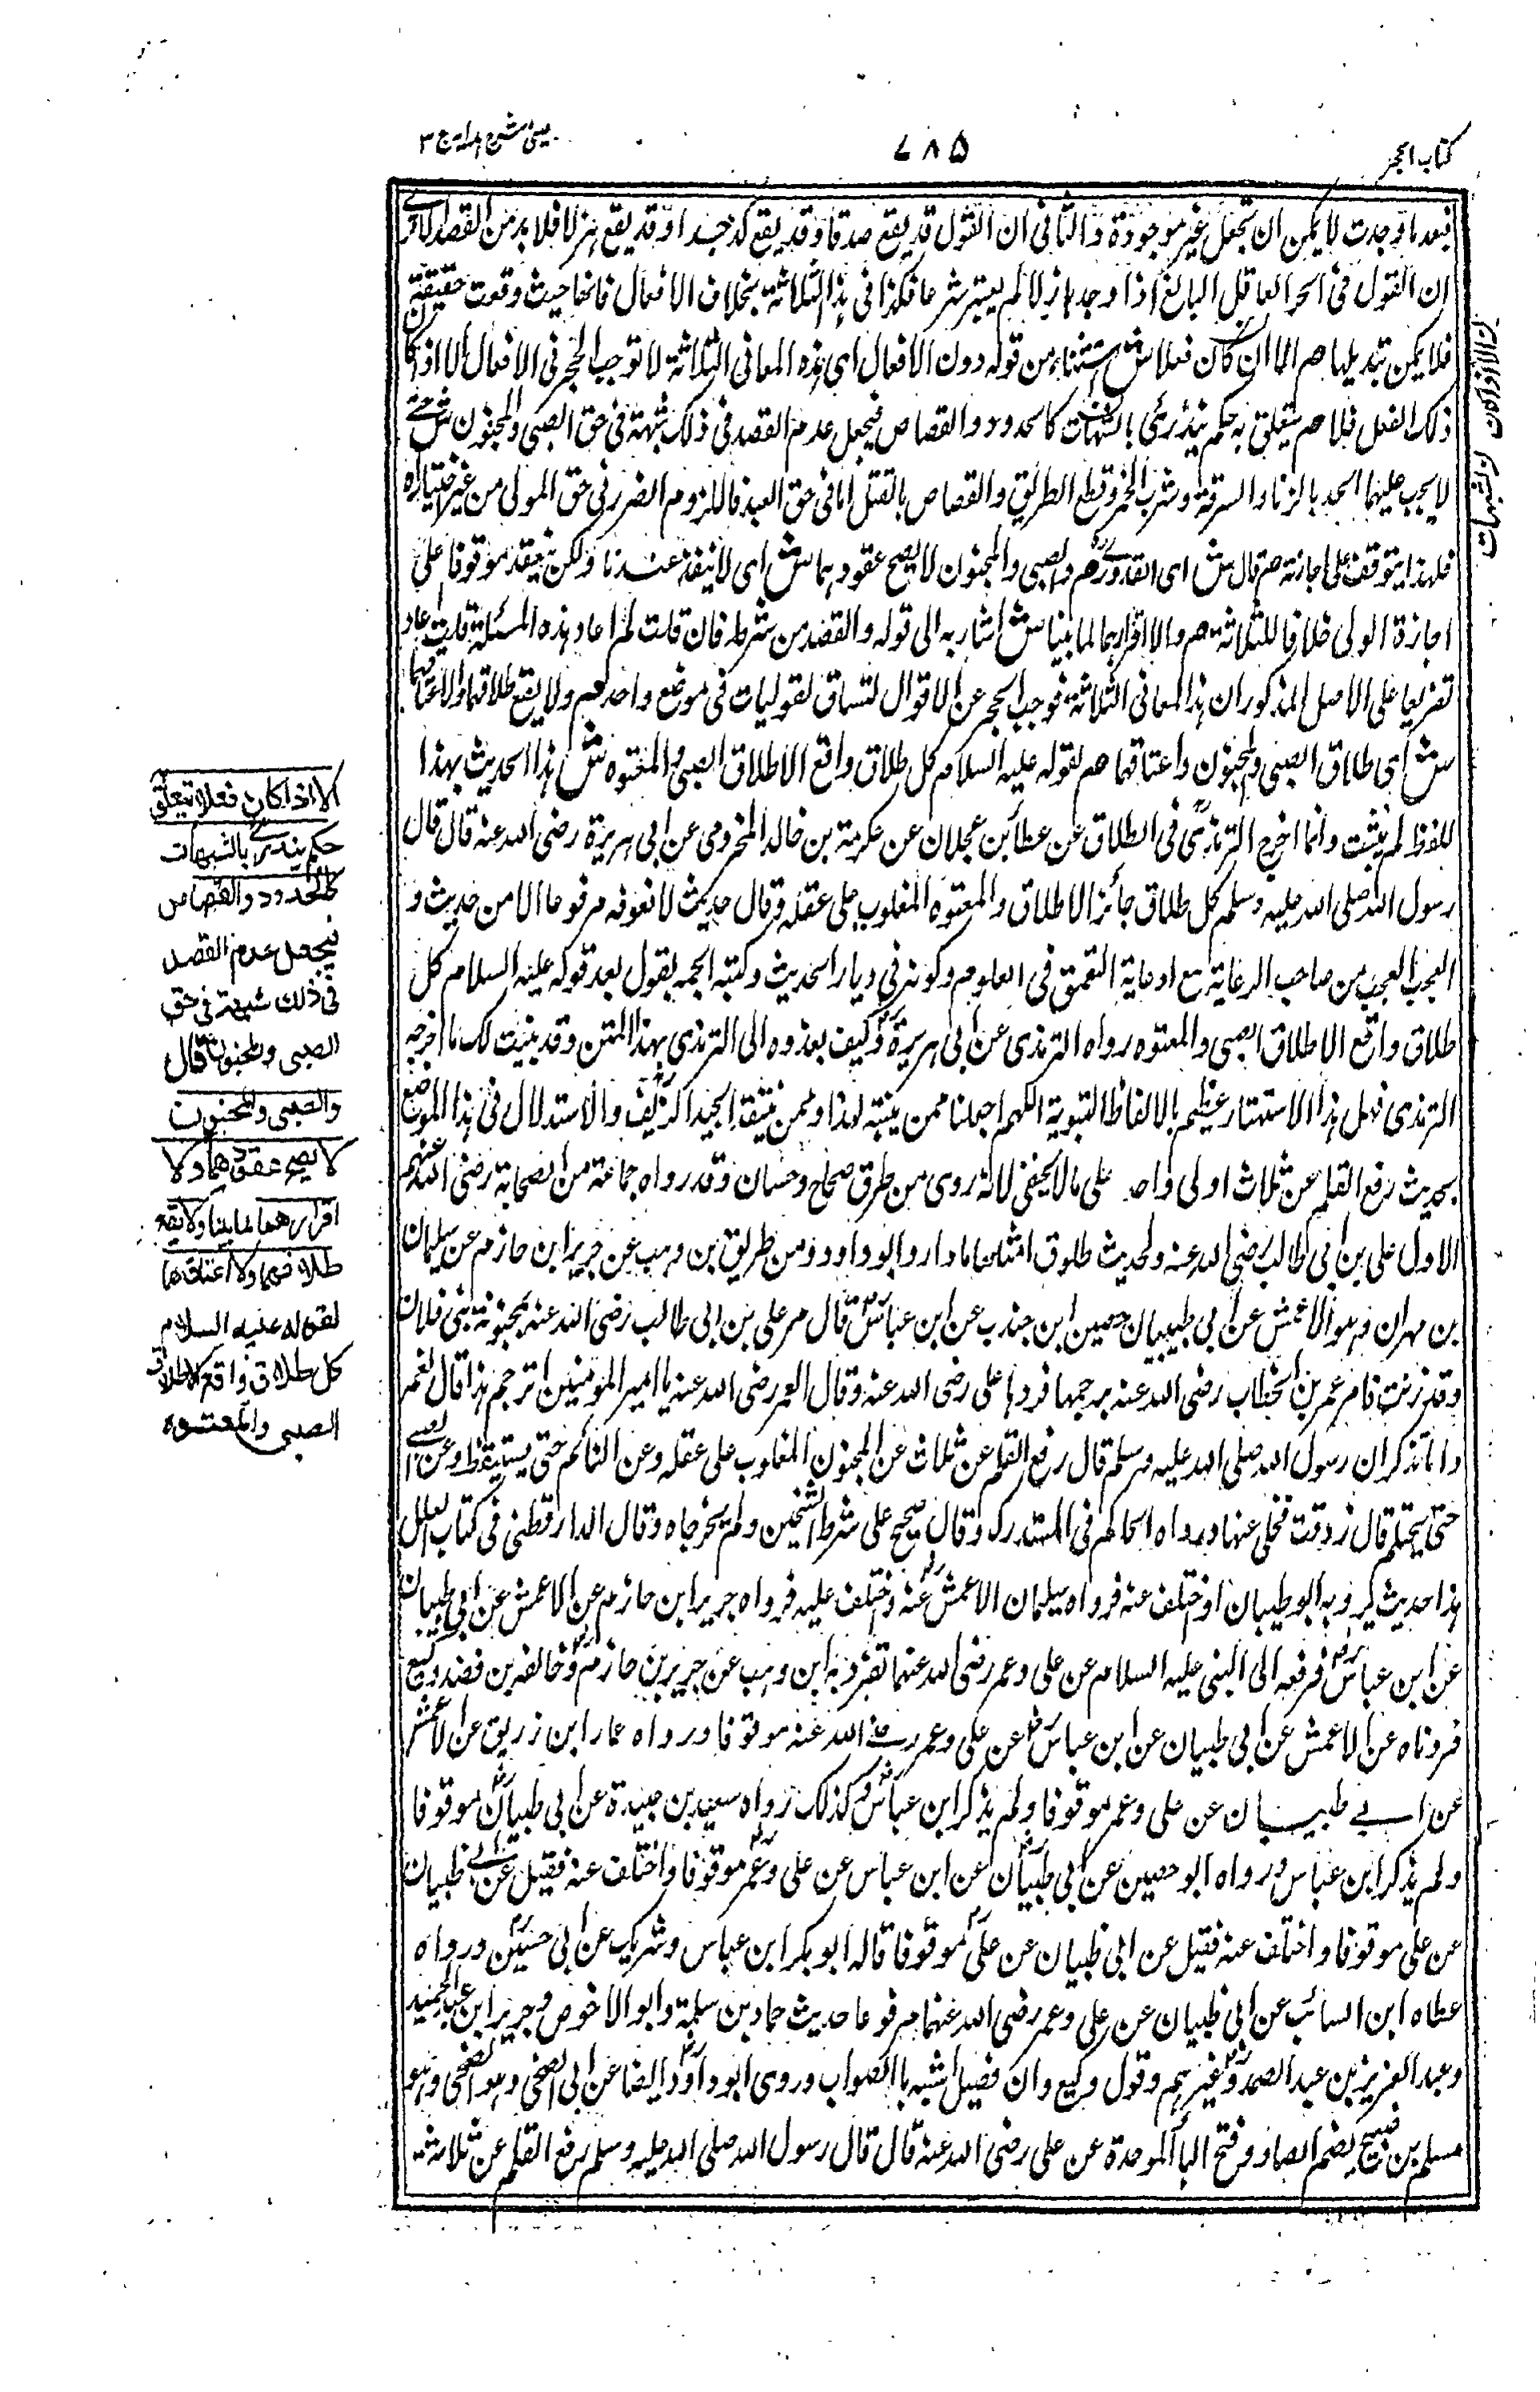 كتاب الحجر
٧٨٥
عيني شرح هدايه ج ٣
فبعد ما وجدت لا يمكن ان تجعل غير موجودة والثاني ان القول قد يقع صدقا وقد يقع كذبا وقد يقع جدا وقد يقع هزلا فلا بد من القصد
ان القول في الحر العاقل البالغ اذا وجد هزلا لم يعتبر شرعا فكذا في هذه الثلاثة بخلاف الافعال فانها حيث وقعت وقعت حقيقة
فلا يمكن تبديلها هم الا ان كان فعلا ش استثناء من قوله دون الافعال اى هذه المعانى الثلاثة لا توجب الحجر فى الافعال الا اذا كان
ذلك الفعل فعلا هم يتعلق به حكم يندرئ بالشبهات كالحدود والقصاص فيجعل عدم القصد فى ذلك شبهة فى حق الصبى والمجنون ش حتى
لا يجب عليهما الحد بالزنا والسرقة وشرب الخمر وقطع الطريق والقصاص بالقتل اما فى حق العبد فاللزوم الضرر فى حق المولى من غير اختياره
فلهذا يتوقف على اجازته هم قال ش اى القدورى هم والصبى والمجنون لا يصح عقودهما ش اى لا ينفذ عندنا ولكن ينعقد موقوفا على
اجازة الولى خلافا للثلاثة هم ولا اقرارهما لما بينا ش اشار به الى قوله والقصد من شرطه فان قلت لم اعاد هذه المسئلة قلت اعاد
تفريعا على الاصل المذكور ان هذا المعانى الثلاثة فوجب الحجر عن الاقوال لتساق لقوليات فى موضع واحد هم ولا يقع طلاقهما ولا اعتاقهما
ش اى طلاق الصبى والمجنون واعتاقهما هم لقوله عليه السلام كل طلاق واقع الا طلاق الصبى والمعتوه ش هذا الحديث بهذا
للفظ لم يثبت وانما اخرج الترمذى فى الطلاق عن عطا بن عجلان عن عكرمة بن خالد المخزومى عن ابى هريرة رضى الله عنه قال قال
رسول الله صلى الله عليه وسلم كل طلاق جائز الا طلاق والمعتوه المغلوب على عقله وقال حديث لا نعرفه مرفوعا الا من حديث و
العجب العجب من صاحب الرعاية مع ادعاية التعمق فى العلوم وكونه فى ديار الحديث وكتبه الجمة يقول بعد قوله عليه السلام كل
طلاق واقع الا طلاق الصبى والمعتوه رواه الترمذى عن ابى هريرة وكيف يعزوه الى الترمذى بهذا المتن وقد بينت لك ما اخرجه
الترمذى فهل هذا الا استهتار عظيم بالالفاظ النبوية اللهم اجعلنا ممن يتنبه لهذا وممن ينتقد الجيد الزيف والاستدلال فى هذا الموضع
بحديث رفع القلم عن ثلاث اولى واحد على ما لا يخفى لانه روى من طرق صحاح وحسان وقد رواه جماعة من الصحابة رضى الله عنهم
الاول على بن ابى طالب رضى الله عنه ولحديث طلوق امثلها ما دار وابو داود ومن طريق بن وهب عن جرير ابن حازم عن سليمان
بن مهران وهو الاعمش عن ابى طبيبان حصين ابن جندب عن ابن عباس قال مر على بن ابى طالب رضى الله عنه بمجنونة بنى فلان
وقد زنت فامر عمر بن الخطاب رضى الله عنه برجمها فردها على رضى الله عنه وقال لعمر رضى الله عنه يا امير المؤمنين اترجم هذا قال نعم
واما تذكر ان رسول الله صلى الله عليه وسلم قال رفع القلم عن ثلاث عن المجنون المغلوب على عقله وعن النائم حتى يستيقظ وعن الصبى
حتى يحتلم قال زدقت فخلى عنها ورواه الحاكم فى المستدرك وقال صحيح على شرط الشيخين ولم يخرجاه وقال الدارقطنى فى كتاب العلل
هذا حديث يرويه ابو طبيان اختلف عنه فرواه سليمان الاعمش عنه واختلف عليه فرواه جرير ابن حازم عن الاعمش عن ابى طبيان
عن ابن عباس فرفعه الى النبى عليه السلام عن على وعمر رضى الله عنهما تفرد به ابن وهب عن جرير بن حازم وخالفه بن فضد وكيع
فروناه عن الاعمش عن ابى طبيان عن ابن عباس عن على وعمر رضى الله عنه موقوفا ورواه عمار ابن زريق عن الاعمش
عن ابى طبيبان عن على وعمر موقوفا ولم يذكر ابن عباس وكذلك رواه سعيد بن عبيدة عن ابى طبيان موقوفا
ولم يذكر ابن عباس ورواه ابو حصين عن ابى طبيان عن ابن عباس عن على وعمر موقوفا واختلف عنه فقيل عن ابى ظبيان
عن على موقوفا واختلف عنه فقيل عن ابى ظبيان عن على موقوفا قاله ابو بكر ابن عباس وشريك عن ابى حسين ورواه
عطاه ابن السائب عن ابى ظبيان عن على وعمر رضى الله عنهما مرفوعا حديث حماد بن سلمة وابو الاخوص وجرير ابن عبد الحميد
وعبد العزيز بن عبد الصمد وغيرهم وقول وكيع وان فضيل اشبه باالصواب وروى ابو داود ايضا عن ابى الضحى وهو الضحى وهو
مسلم بن صبيح بضم الصاد وفتح الباء الموحدة عن على رضى الله عنه قال قال رسول الله صلى الله عليه وسلم رفع القلم عن ثلاثة
الا اذا كان فعلا يتعلق
حكم يندرئ بالشبهات
كالحدود والقصاص
فيجعل عدم القصد
فى ذلك شبهة فى حق
الصبى والمجنون قال
والصبى والمجنون
لا يصح عقودهما ولا
اقرارهما لما بينا ولا يقع
طلاقهما ولا اعتاقهما
لقوله عليه السلام
كل طلاق واقع الا طلاق
الصبى والمعتوه